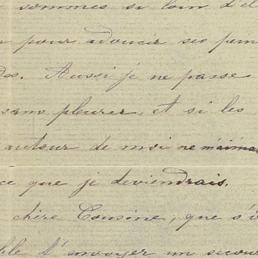 sommes si loin d'el
pour adoucir ses pein
Aussi je ne passe
sans pleurer, et si les
autour de moi ne m'aimai
ce que je deviendrais.
chère Cousine, que s'i
ble d'envoyer un secour